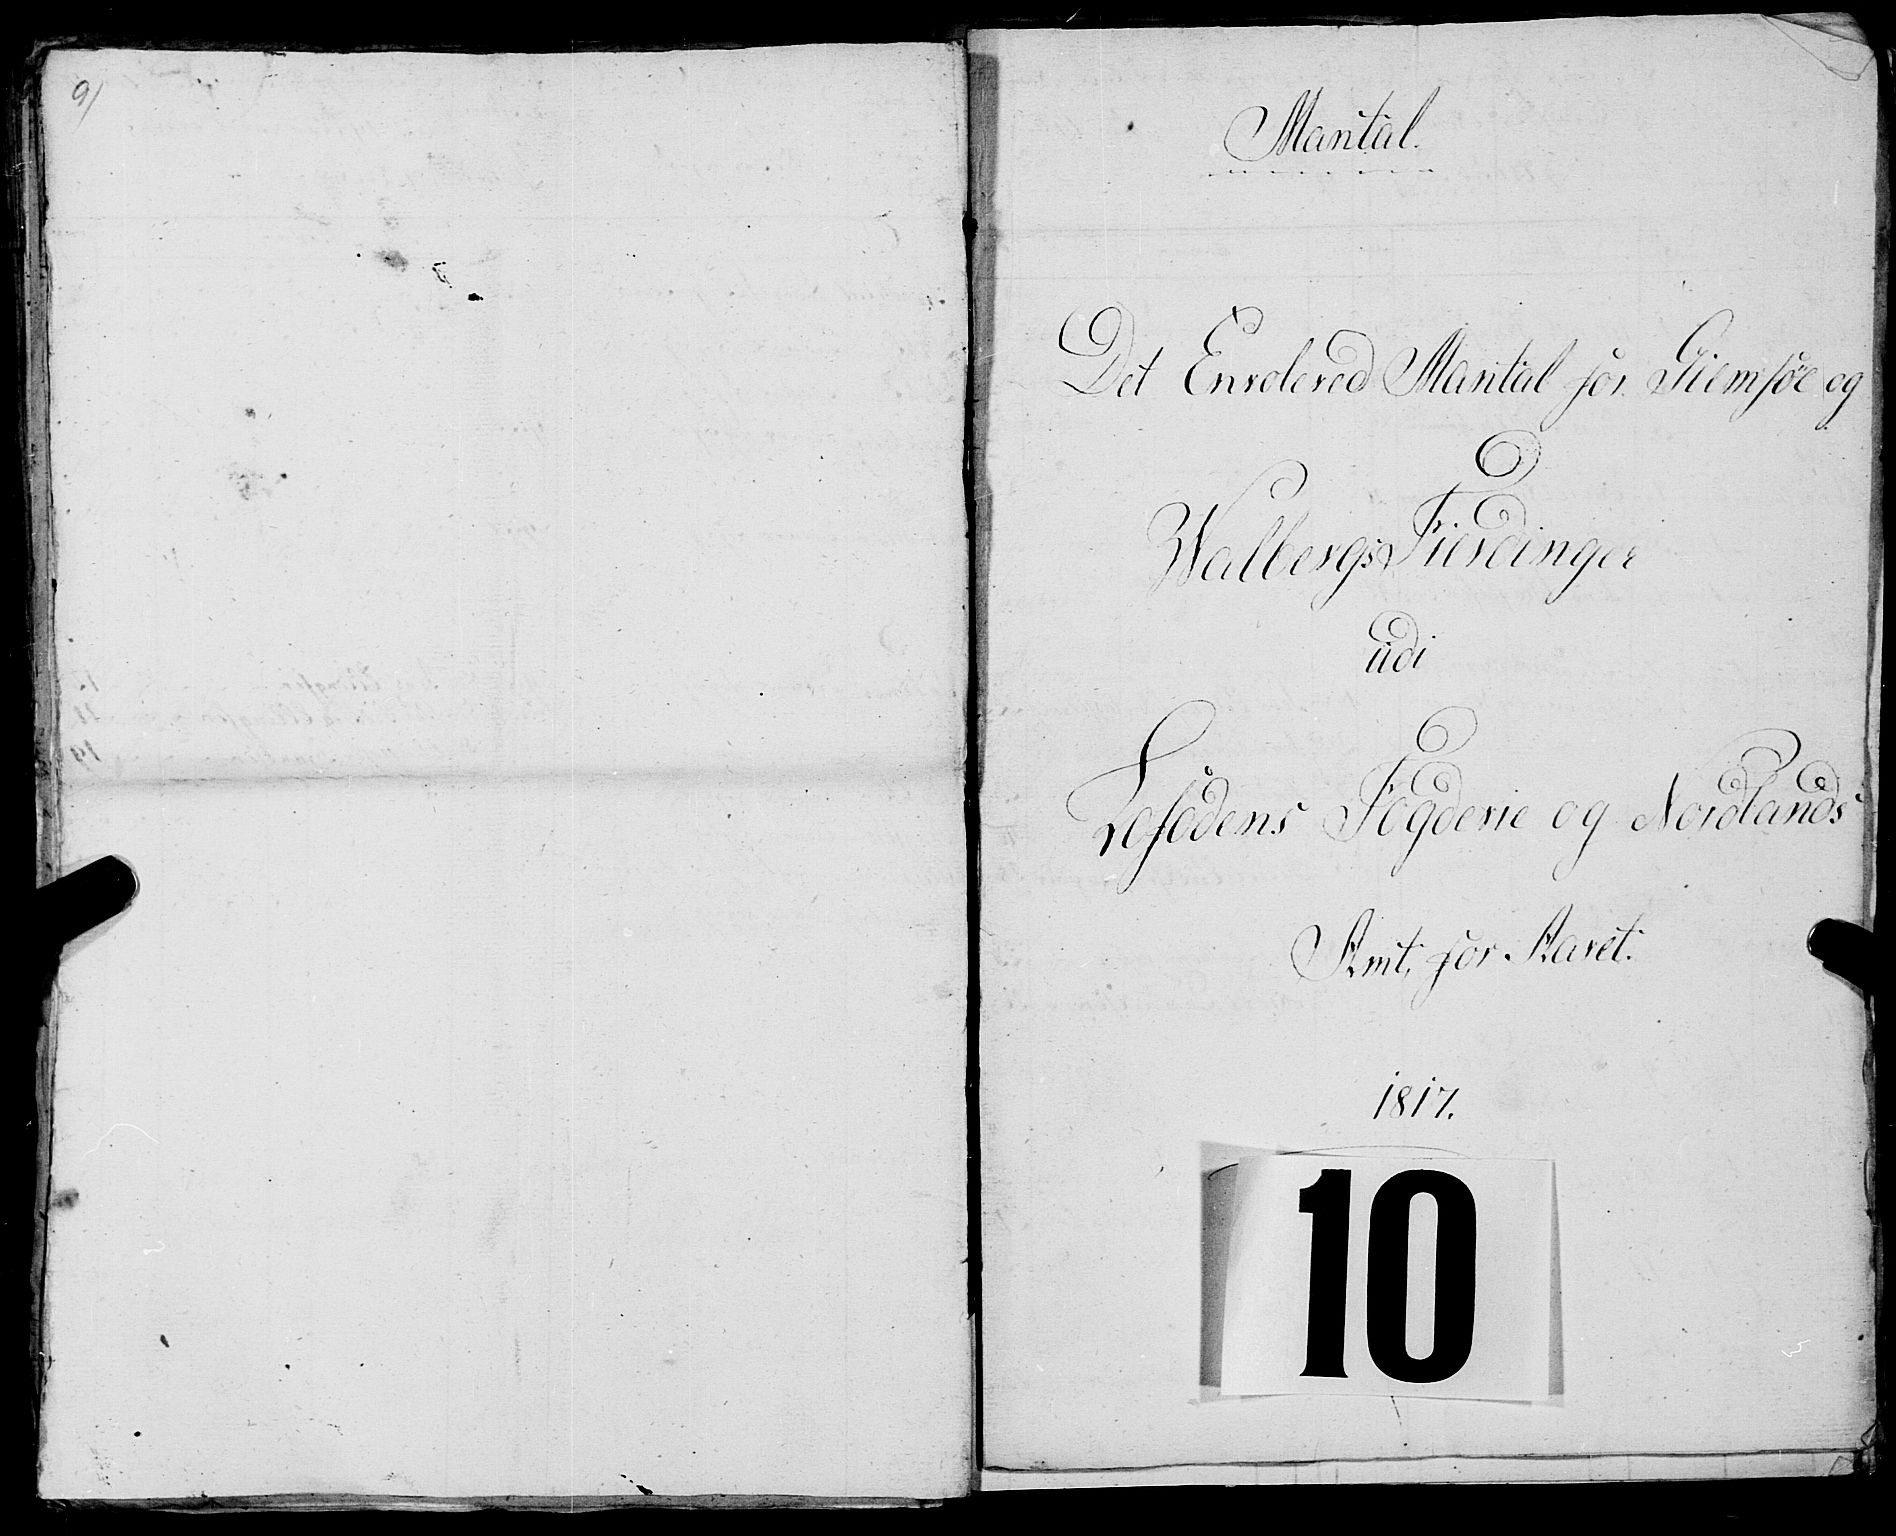 9/
Mantal.
Det Enrolered Mantal for Giemsøe og
Walbergs Fierdinger
udi
Lofodens Fogderie og Nordlands
Amt, for Aaret.
1817.
10